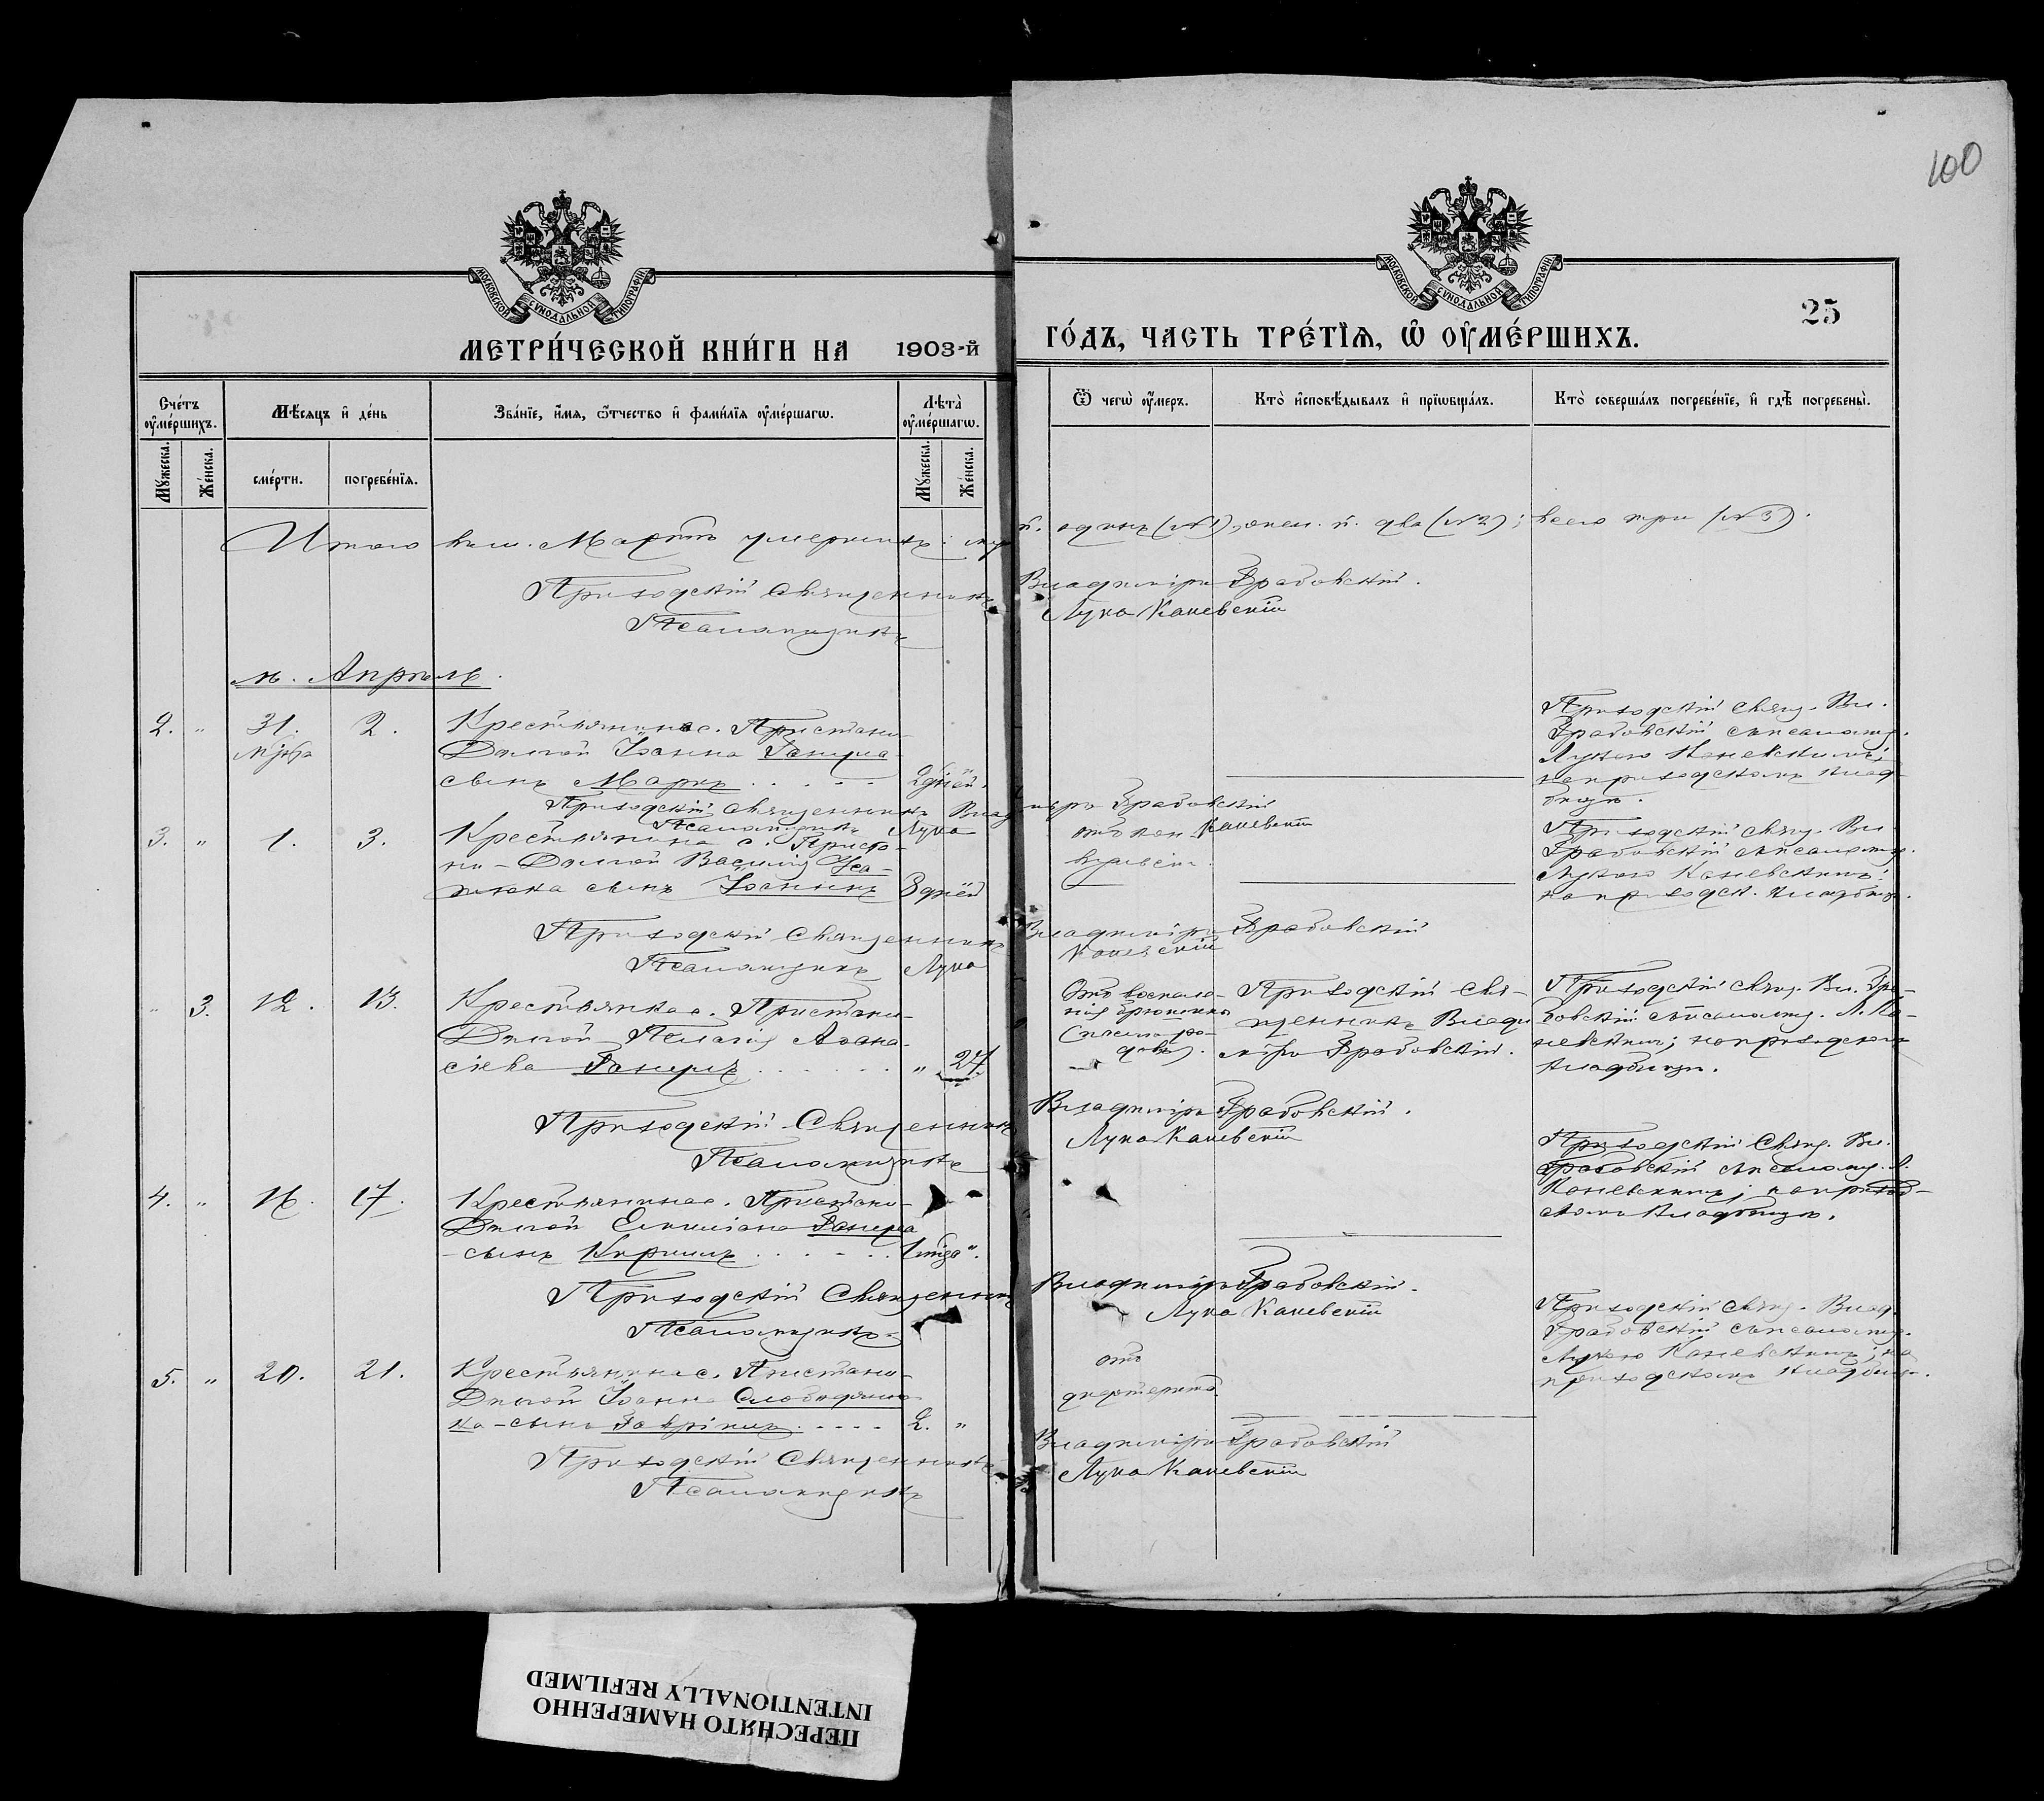 100
МОСКОВСКОЙ СѴНОДАЛЬНОЙ ТИПОГРАФІИ
МОСКОВСКОЙ СѴНОДАЛЬНОЙ ТИПОГРАФІИ
25
МЕТРИ́ЧЕСКОЙ КНИ́ГИ НА 1903-й ГО́ДЪ, ЧАСТЬ ТРЕ́ТЇѦ, Ѽ ОУ҆МЕ́РШИХЪ.
Сче́тъ оу҆ме́ршихъ.
Мѣ́сѧцъ и҆ де́нь
Зва́нїе, и҆́мѧ, ѻ҆́тчество и҆ фами́лїѧ оу҆ме́ршагѡ.
Лѣта̀ оу҆ме́ршагѡ.
Ѿ чегѡ̀ оу҆́меръ.
Кто̀ и҆сповѣ́дывалъ и҆ прїѡбща́лъ.
Кто̀ соверша́лъ погребе́нїе, и҆ гдѣ̀ погребены̀.
Мꙋ́жеска.
Же́нска.
сме́рти.
погребе́нїѧ.
Мꙋ́жеска.
Же́нска.
Итого въ м. Мартѣ умершихъ: муж. п. одинъ (№ 1), жен. п. два (№ 2); всего три (№ 3).
Приходскій Священникъ Владиміръ Грабовскій.
Псаломщикъ Лука Каневскій
м. Апрѣль.
2. " 31. 2.
Марта
Крестьянина с. Пристани-
Долгой Іоанна Ганула
сынъ Маркъ . . . . . 2 дней.
Приходскій свящ. Вл.
Грабовскій съ псаломщ.
Лукою Каневскимъ;
на приходскомъ клад-
бищѣ.
Приходскій Священникъ Владиміръ Грабовскій
Псаломщикъ Лука Каневскій
3. " 1. 3.
Крестьянина с. Приста-
ни-Долгой Василія
сынъ Іоаннъ 3 дней
Приходскій свящ. Вл.
Грабовскій съ псаломщ.
Лукою Каневскимъ;
на приходск. кладбищѣ.
Приходскій Священникъ Владиміръ Грабовскій
Псаломщикъ Лука Каневскій
" 3. 12. 13.
Крестьянка с. Пристани-
Долгой Пелагія Аѳана-
сіева Ганулъ . . . . . . " 27
Отъ воспале-
нія брюшины
Приходскій Свя-
щенникъ Влади-
міръ Грабовскій.
Приходскій свящ. Вл. Гра-
бовскій съ псаломщ. Л. Ка-
невскимъ; на приходскомъ
кладбищѣ.
Приходскій Священникъ Владиміръ Грабовскій.
Псаломщикъ Лука Каневскій
4. " 16. 17.
Крестьянина с. Пристани-
Долгой Емиліана Ганула
сынъ Кириллъ . . . . . 1 мѣс. ".
Приходскій Свящ. Вл.
Грабовскій съ псаломщ. Л.
Каневскимъ; на приход-
скомъ кладбищѣ.
Приходскій Священникъ Владиміръ Грабовскій.
Псаломщикъ Лука Каневскій
5. " 20. 21.
Крестьянина с. Пристани-
Долгой Іоанна Слободяню-
ка-сынъ Гавріилъ . . . . 2. "
отъ
дифтерита
Приходскій свящ. Влад.
Грабовскій съ псаломщ.
Лукою Каневскимъ; на
приходскомъ кладбищѣ.
Приходскій Священникъ Владиміръ Грабовскій
Псаломщикъ Лука Каневскій
ПЕРЕСНЯТО НАМЕРЕННО
INTENTIONALLY REFILMED